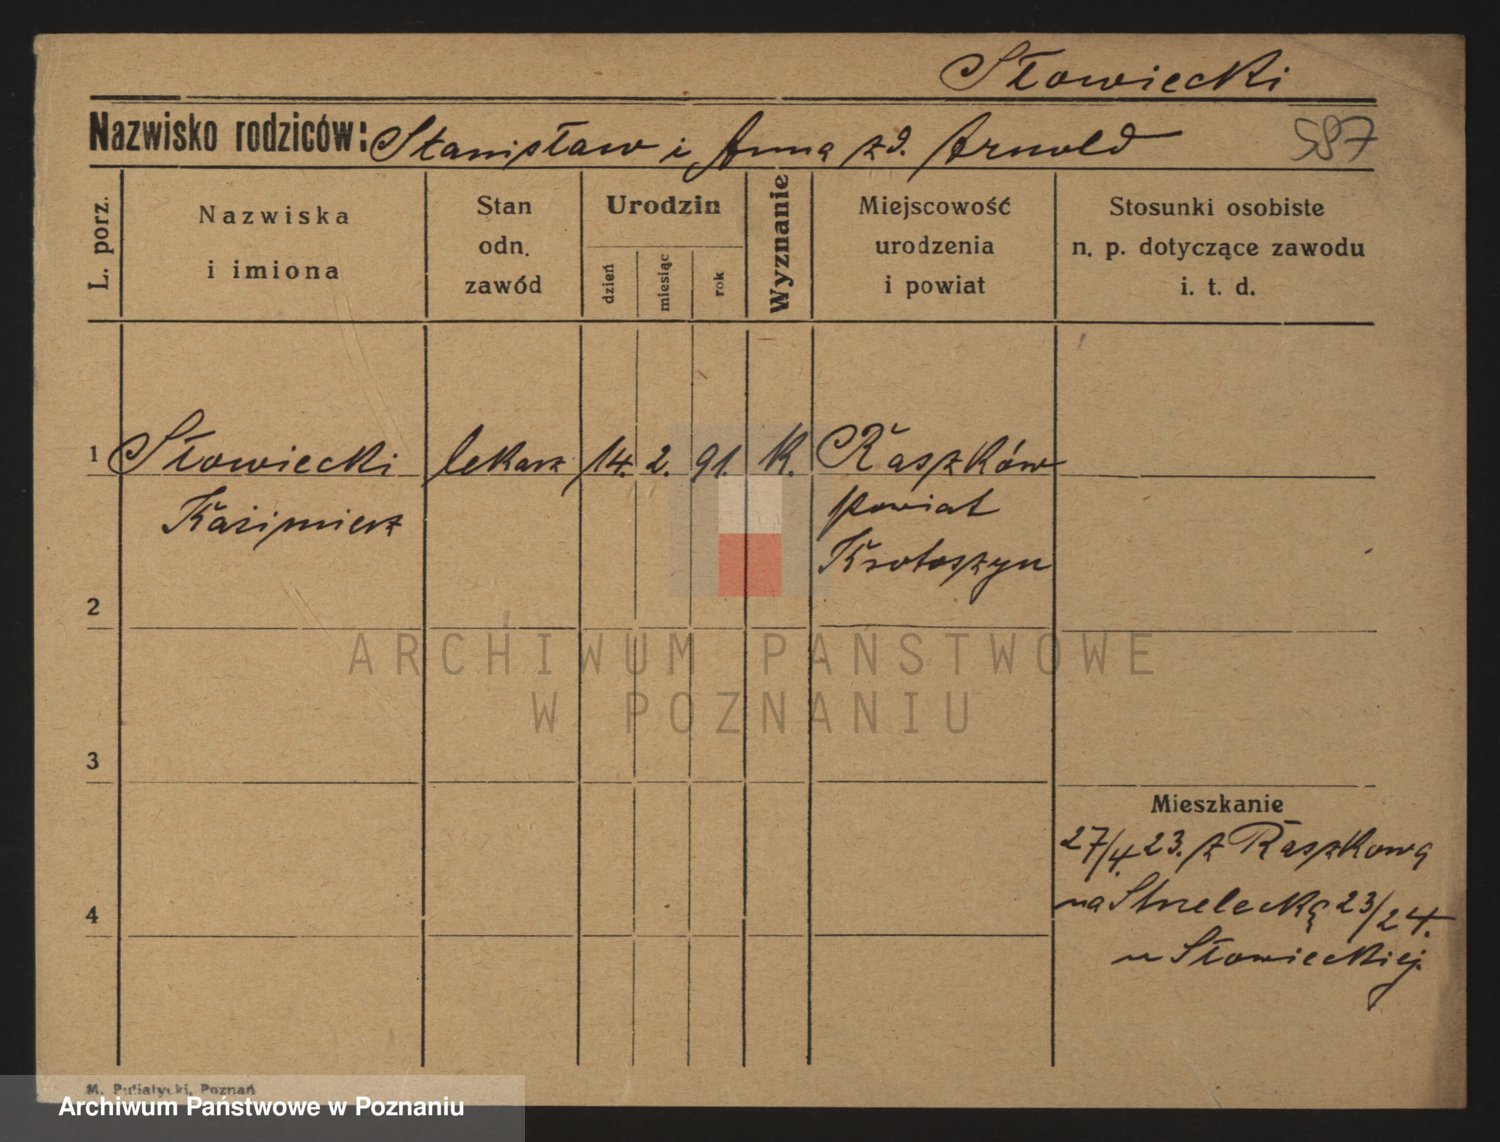 Słowiecki
Nazwisko rodziców: Stanisław i Anna zd. Arnold
587
L. porz.
Nazwiska
i imiona
Stan
odn.
zawód
Urodzin
dzień
miesiąc
rok
Wyznanie
Miejscowość
urodzenia
i powiat
Stosunki osobiste
n. p. dotyczące zawodu
i. t. d.
1 Słowiecki lekarz 14. 2. 91. K. Raszków
Kaźimierz powiat
Krotoszyn
2
3
Mieszkanie
27/4.23. z Raszkowa
na Strzelecką 23/24.
u Słowieckiej.
4
ARCHIWUM PAŃSTWOWE
W POZNANIU
M. Putiatycki, Poznań
Archiwum Państwowe w Poznaniu